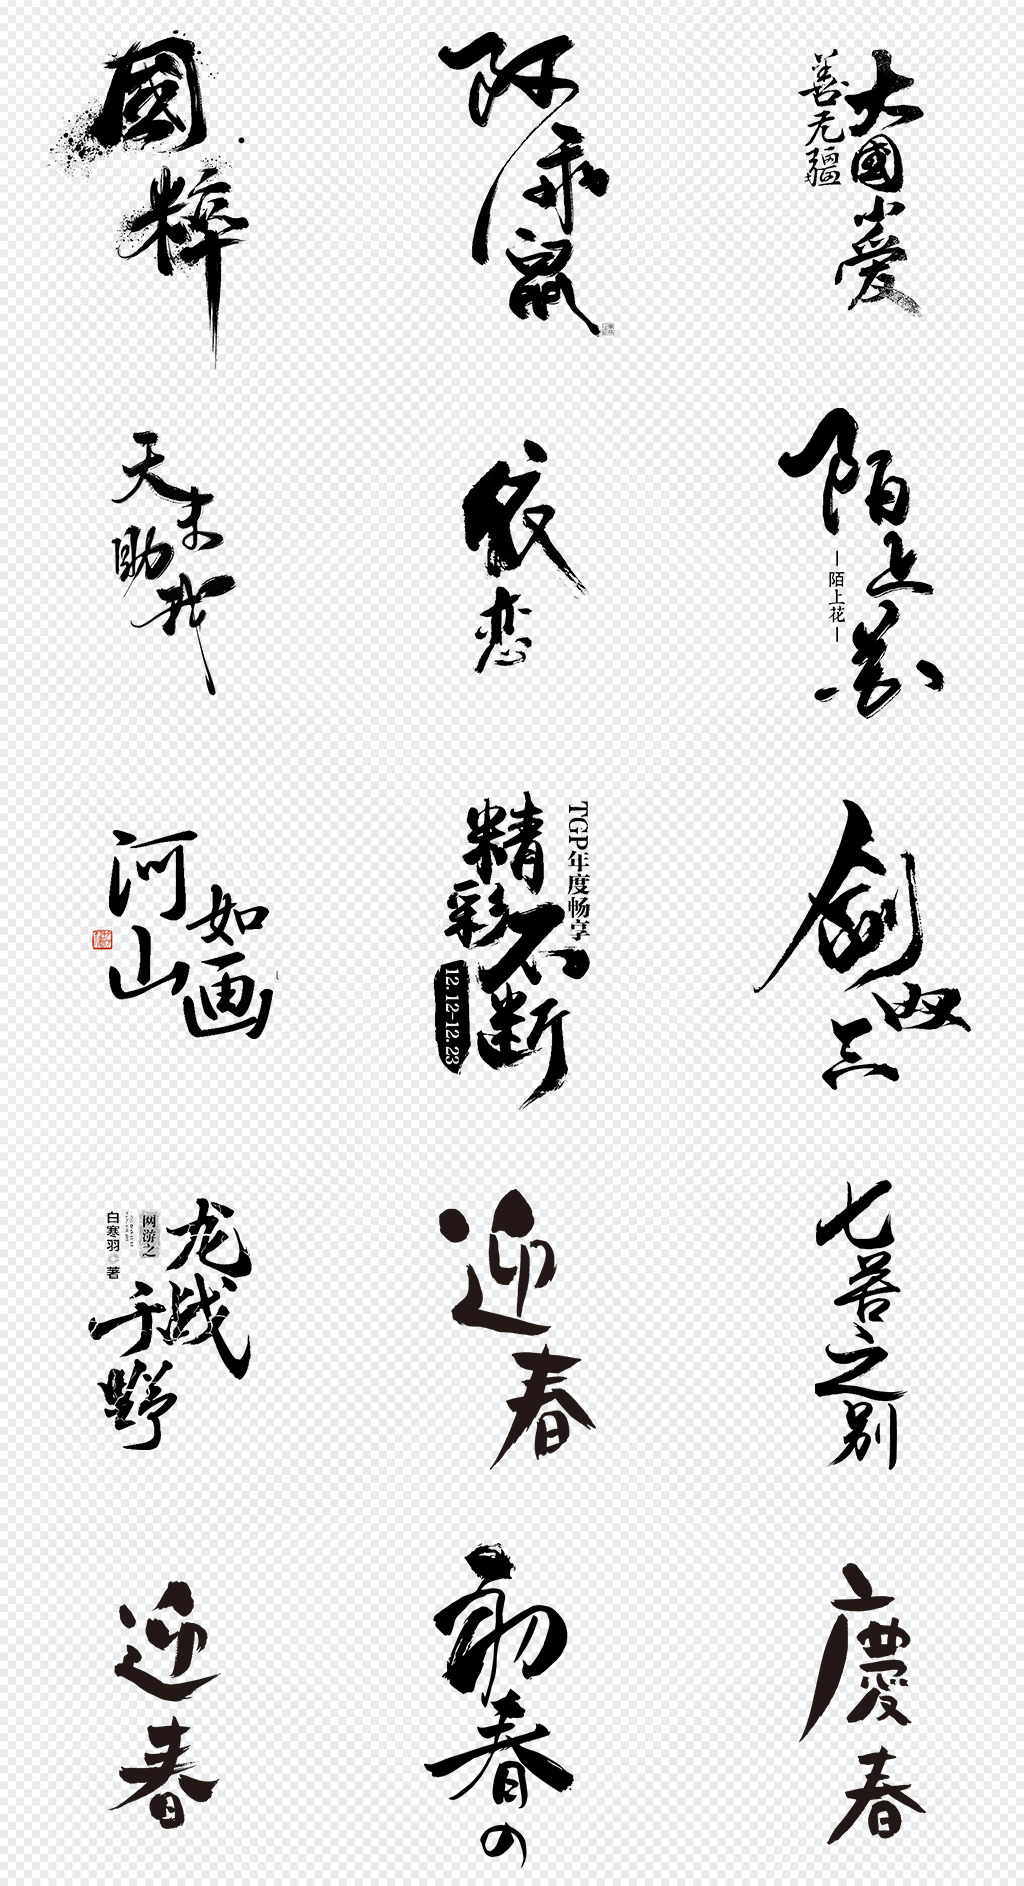 國粹
阿承鼠
大國小爱
善无疆
天才助我
依恋
陌上花
陌上花
河山
如画
TGP年度畅享
精彩不断
12.12-12.23
剑奴三
龙战于野
网游之
白寒羽◎著
迎春
七若之别
迎春
初春の
慶春